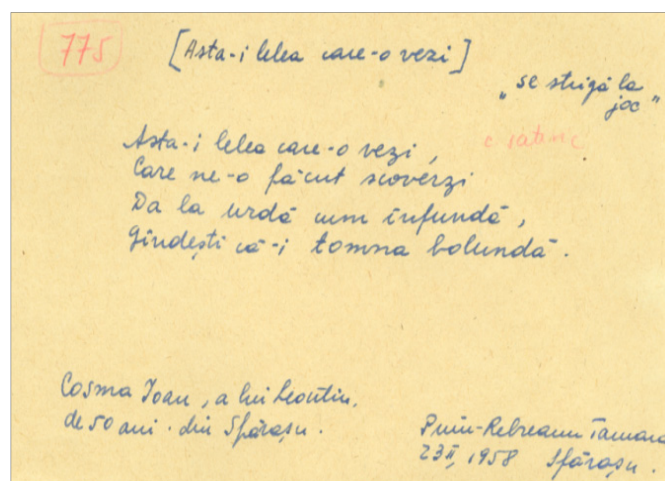 775
[Asta-i lelea care-o vezi]
"se strigă la
joc"
Asta-i lelea care-o vezi,
Care ne-o făcut scoverzi
Da la urdă cum înfundă,
Gîndești că-i tomna bolundă.
Cosma Ioan, a lui Leontin,
de 50 ani. din Sfărașu.
-Rebreanu Tamara
23 II, 1958 Sfărașu.